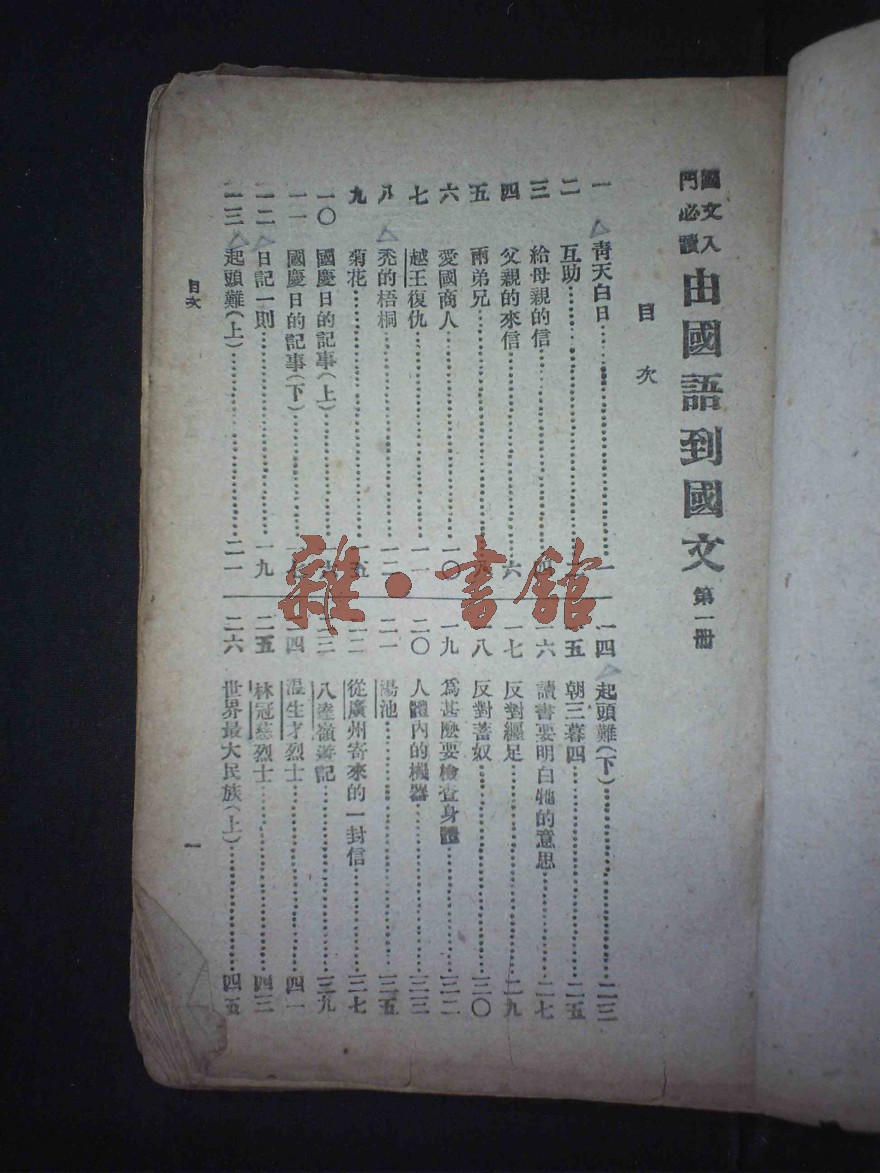 國文入門必讀 由國語到國文 第一冊
目次
一 青天白日 一
二 互助
三 給母親的信 四
四 父親的來信 六
五 兩弟兄
六 愛國商人 一〇
七 越王復仇 一一
八 禿的梧桐 一二
九 菊花 一五
一〇 國慶日的記事(上)
一一 國慶日的記事(下)
一二 日記一則 一九
一三 起頭難(上) 二一
一四 起頭難(下) 二三
一五 朝三暮四 二五
一六 讀書要明白牠的意思 二七
一七 反對纏足 二九
一八 反對蓄奴 三〇
一九 爲甚麼要檢查身體 三二
二〇 人體內的機器 三三
二一 湯池 三五
二二 從廣州寄來的一封信 三七
二三 八達嶺遊記 三九
二四 温生才烈士 四一
二五 林冠慈烈士 四三
二六 世界最大民族(上) 四五
目次
一
雜·書館